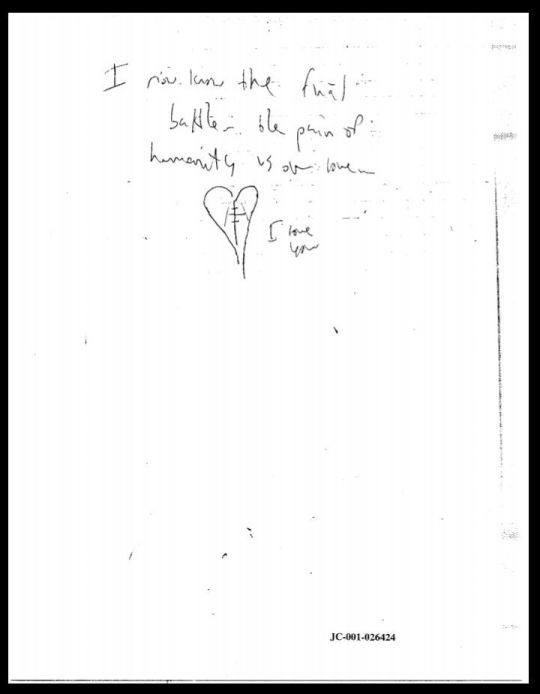 I now know the final
battle - the pain of
humanity vs our love -
I love
you
JC-001-026424